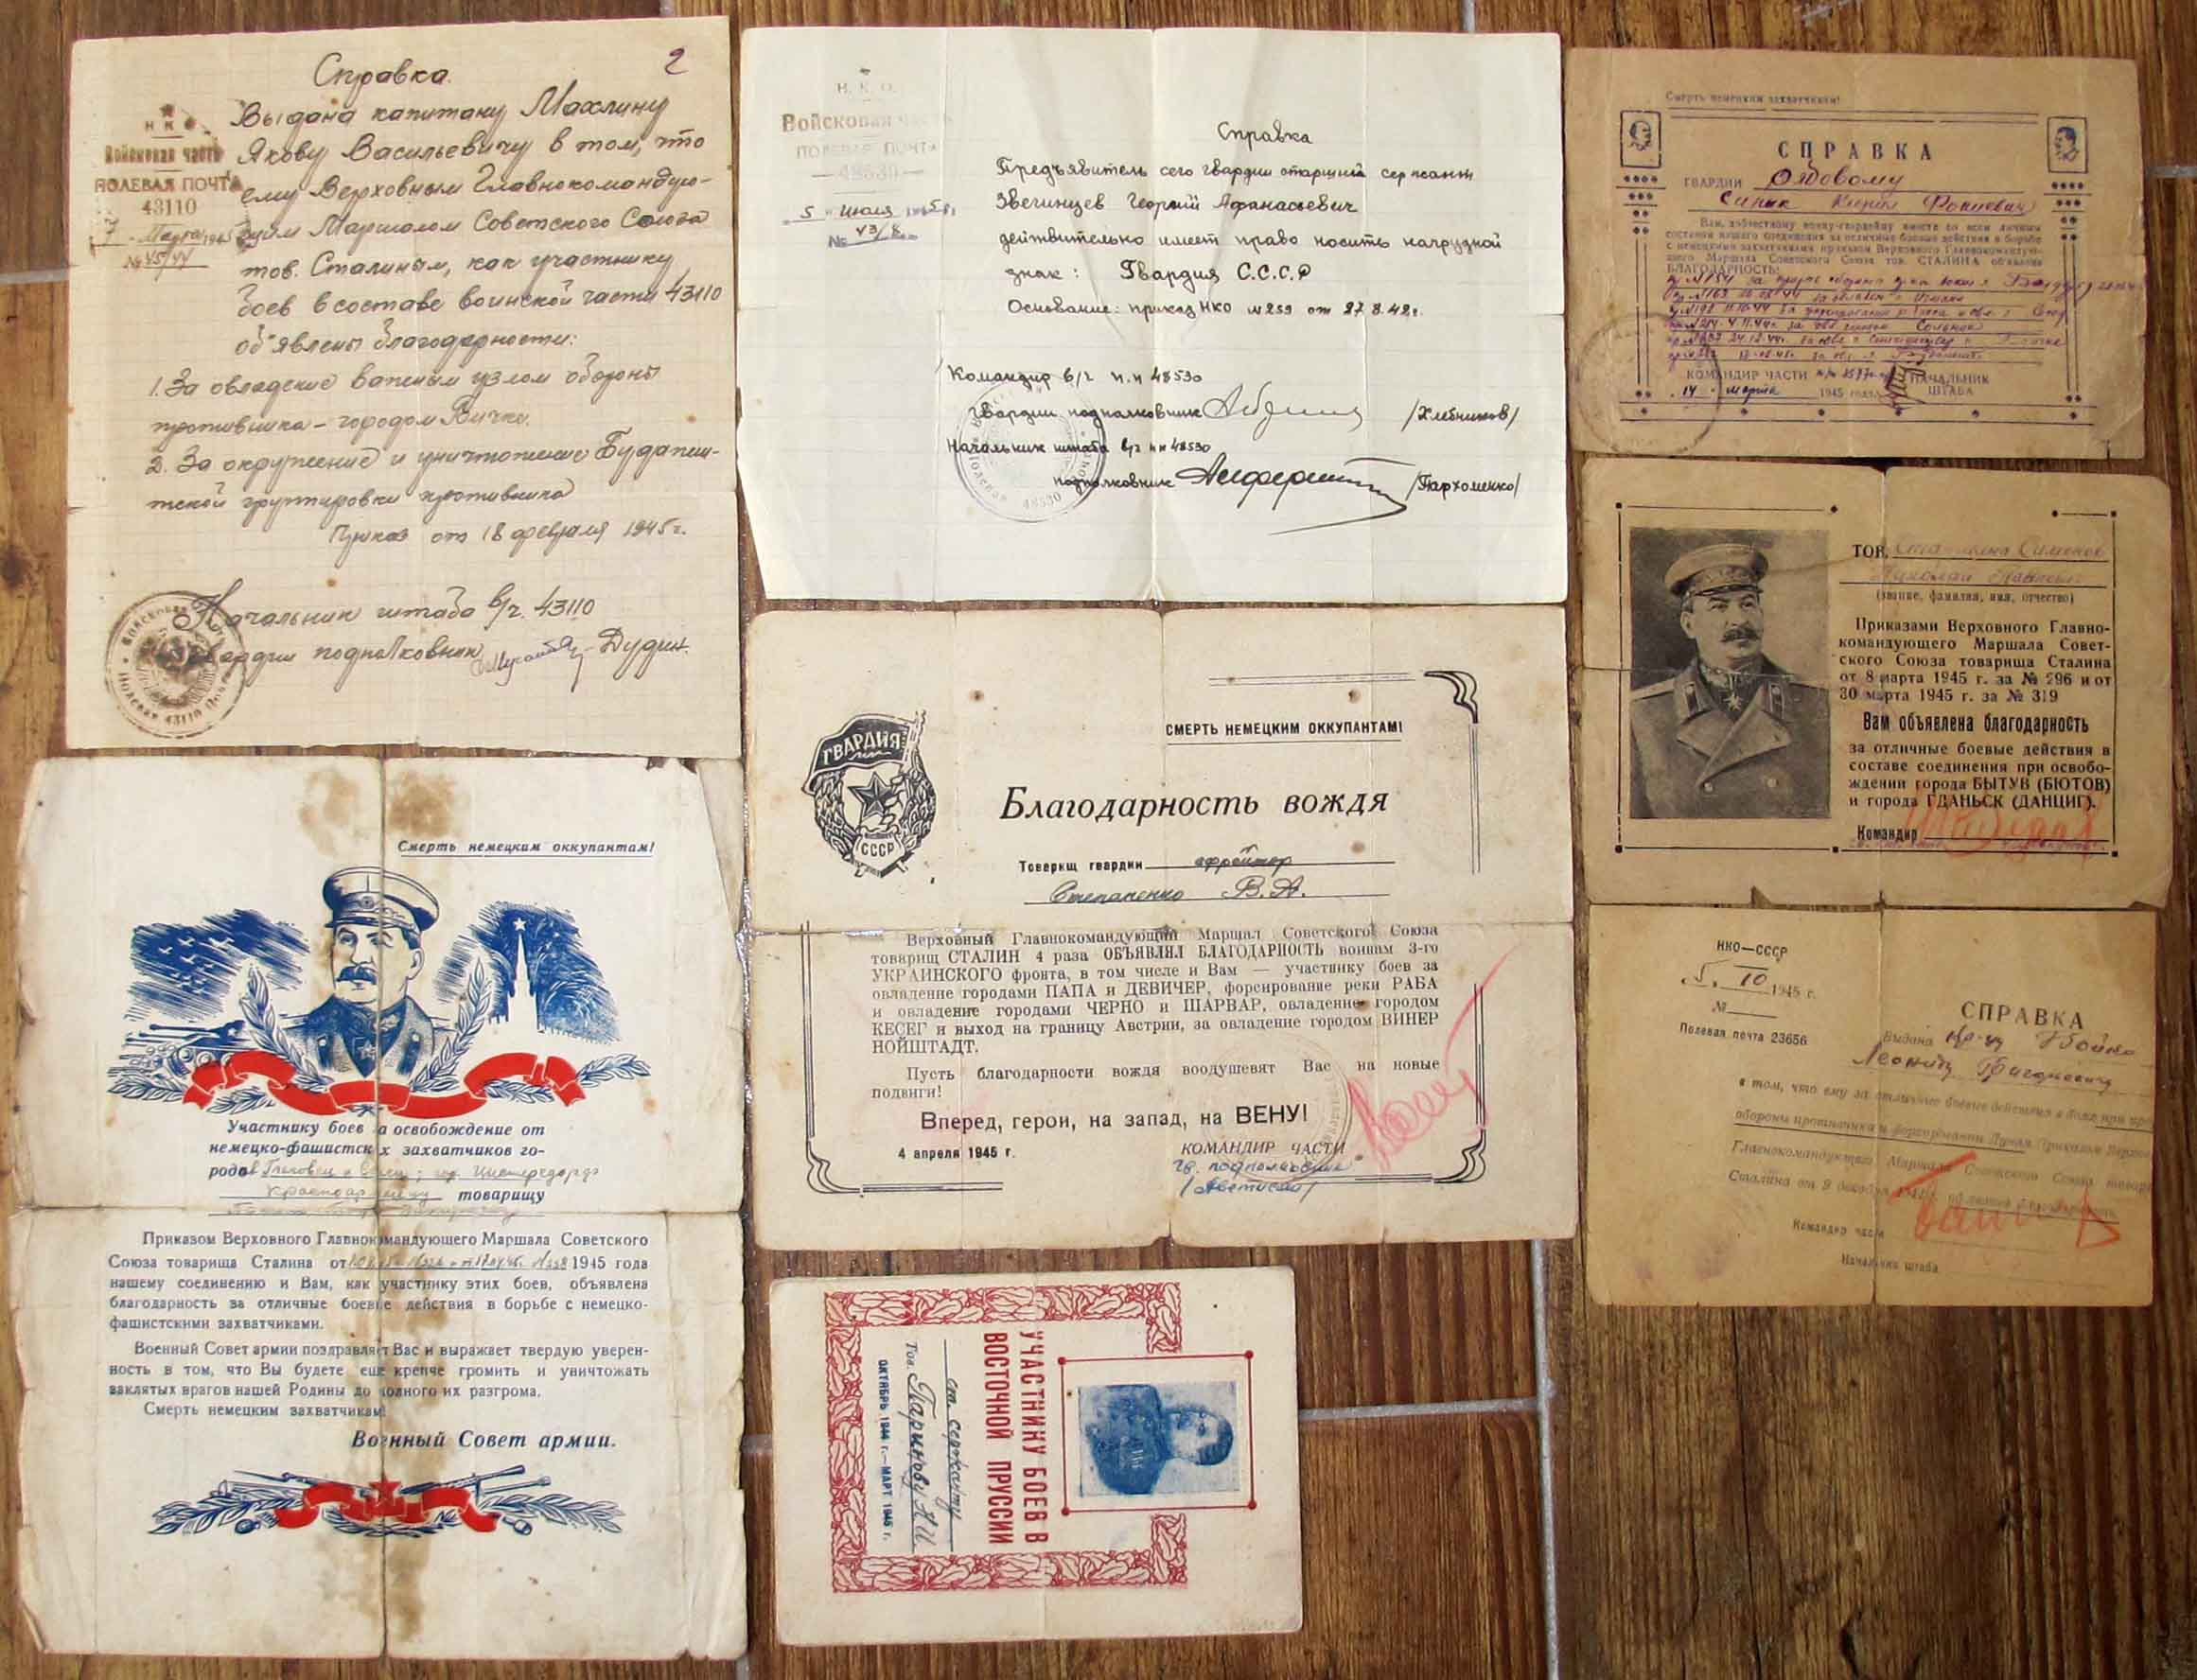 Справка.
2
Выдана капитану Махлину
Якову Васильевичу в том, что
ему Верховным Главнокомандую-
щим Маршалом Советского Союза
тов. Сталиным, как участнику
боев в составе воинской части 43110
об"явлены благодарности:
1. За овладение важным узлом обороны
противника – городом Бичке.
2. За окружение и уничтожение Будапеш-
тской группировки противника
Приказ от 18 февраля 1945г.
Начальник штаба в/ч. 43110
гвардии подполковник
Дудин.
НКО
Войсковая часть
ПОЛЕВАЯ ПОЧТА
43110
7 Марта 1945
№ 45/44
Смерть немецким оккупантам!
Участнику боев за освобождение от
немецко-фашистских захватчиков го-
родов
Красноармейцу товарищу
Приказом Верховного Главнокомандующего Маршала Советского
Союза товарища Сталина от 1945 года
нашему соединению и Вам, как участнику этих боев, объявлена
благодарность за отличные боевые действия в борьбе с немецко-
фашистскими захватчиками.
Военный Совет армии поздравляет Вас и выражает твердую уверен-
ность в том, что Вы будете еще крепче громить и уничтожать
заклятых врагов нашей Родины до полного их разгрома.
Смерть немецким захватчикам!
Военный Совет армии.
Н.К.О.
Войсковая часть
ПОЛЕВАЯ ПОЧТА
— 48530 —
5 июля 1945 г.
№ 43/8
Справка
Предъявитель сего гвардии старший сержант
Звегинцев Георгий Афанасьевич
действительно имеет право носить нагрудной
знак: Гвардия С.С.С.Р
Основание: приказ НКО №259 от 27.8.42г.
Командир в/ч п.п 48530
гвардии подполковник /Хлебников/
Начальник штаба в/ч пп 48530
подполковник /Пархоменко/
ГВАРДИЯ
СССР
СМЕРТЬ НЕМЕЦКИМ ОККУПАНТАМ!
Благодарность вождя
Товарищ гвардии ефрейтор
Степаненко В.А.
Верховный Главнокомандующий Маршал Советского Союза
товарищ СТАЛИН 4 раза ОБЪЯВЛЯЛ БЛАГОДАРНОСТЬ воинам 3-го
УКРАИНСКОГО фронта, в том числе и Вам — участнику боев за
овладение городами ПАПА и ДЕВИЧЕР, форсирование реки РАБА
и овладение городами ЧЕРНО и ШАРВАР, овладение городом
КЕСЕГ и выход на границу Австрии, за овладение городом ВИНЕР
НОЙШТАДТ.
Пусть благодарности вождя воодушевят Вас на новые
подвиги!
Вперед, герои, на запад, на ВЕНУ!
4 апреля 1945 г.
КОМАНДИР ЧАСТИ
гв. подполковник
УЧАСТНИКУ БОЕВ В
ВОСТОЧНОЙ ПРУССИИ
ст. сержанту
Тов. Паринову А И
ОКТЯБРЬ 1944 г.—МАРТ 1945 г.
Смерть немецким захватчикам!
СПРАВКА
ГВАРДИИ Рядовому
Вам, доблестному воину-гвардейцу вместе со всем личным
составом нашего соединения за отличные боевые действия в борьбе
с немецкими захватчиками приказом Верховного Главнокомандую-
щего Маршала Советского Союза тов. СТАЛИНА объявлена
БЛАГОДАРНОСТЬ:
КОМАНДИР ЧАСТИ
НАЧАЛЬНИК
ШТАБА
14 марта 1945 года
ТОВ.
(звание, фамилия, имя, отчество)
Приказами Верховного Главно-
командующего Маршала Совет-
ского Союза товарища Сталина
от 8 марта 1945 г. за № 296 и от
30 марта 1945 г. за № 319
Вам объявлена благодарность
за отличные боевые действия в
составе соединения при освобо-
ждении города БЫТУВ (БЮТОВ)
и города ГДАНЬСК (ДАНЦИГ).
Командир
НКО—СССР
5. 10 1945 г.
№
Полевая почта 23656
СПРАВКА
Выдана кр-цу Бойко
Леониду Григорьевичу
в том, что ему за отличные боевые действия в боях при
обороны противника и форсировании Дуная Приказом
Главнокомандующего Маршала Советского Союза
Сталина от 9 декабря объявлена благодарность
Командир части
Начальник штаба